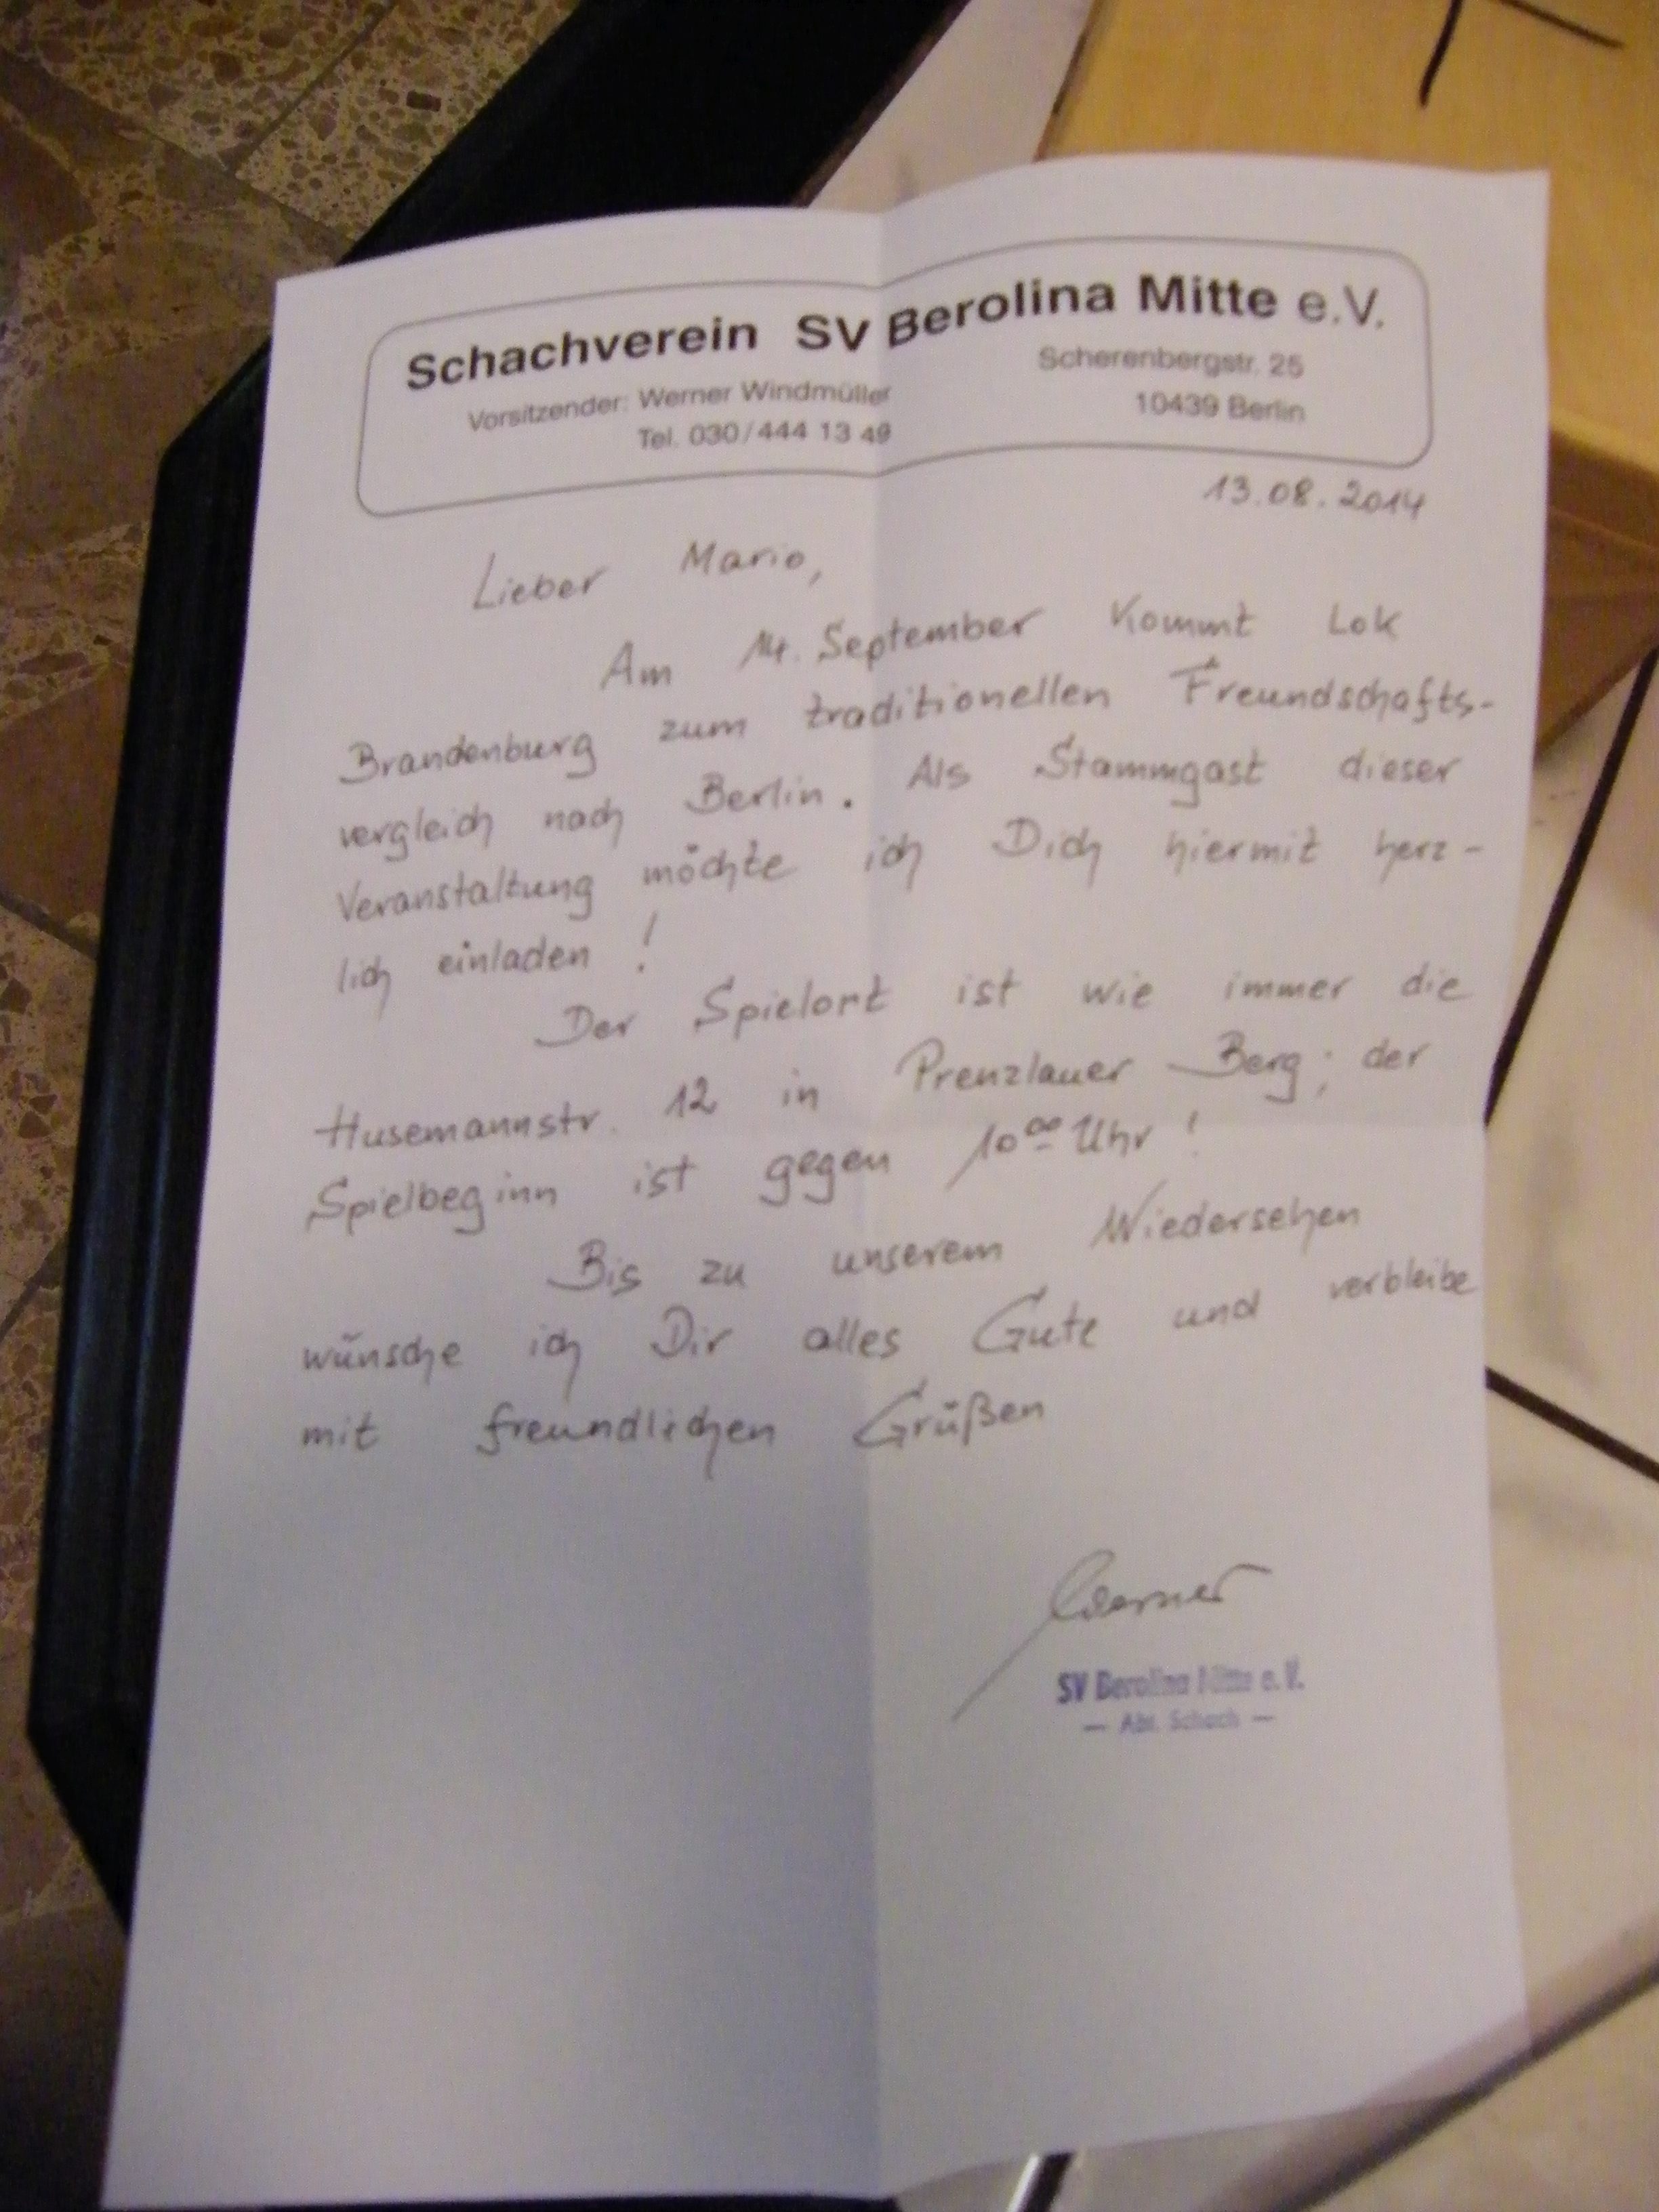 Schachverein SV Berolina Mitte e.V.
Vorsitzender: Werner Windmüller
Tel. 030/444 13 49
Scherenbergstr. 25
10439 Berlin
13.08.2014
Lieber Mario,
Am 14. September kommt Lok
Brandenburg zum traditionellen Freundschafts-
vergleich nach Berlin. Als Stammgast dieser
Veranstaltung möchte ich Dich hiermit herz-
lich einladen!
Der Spielort ist wie immer die
Husemannstr. 12 in Prenzlauer Berg; der
Spielbeginn ist gegen 10⁰⁰ Uhr!
Bis zu unserem Wiedersehen
wünsche ich Dir alles Gute und verbleibe
mit freundlichen Grüßen
Werner
SV Berolina Mitte e.V.
— Abt. Schach —